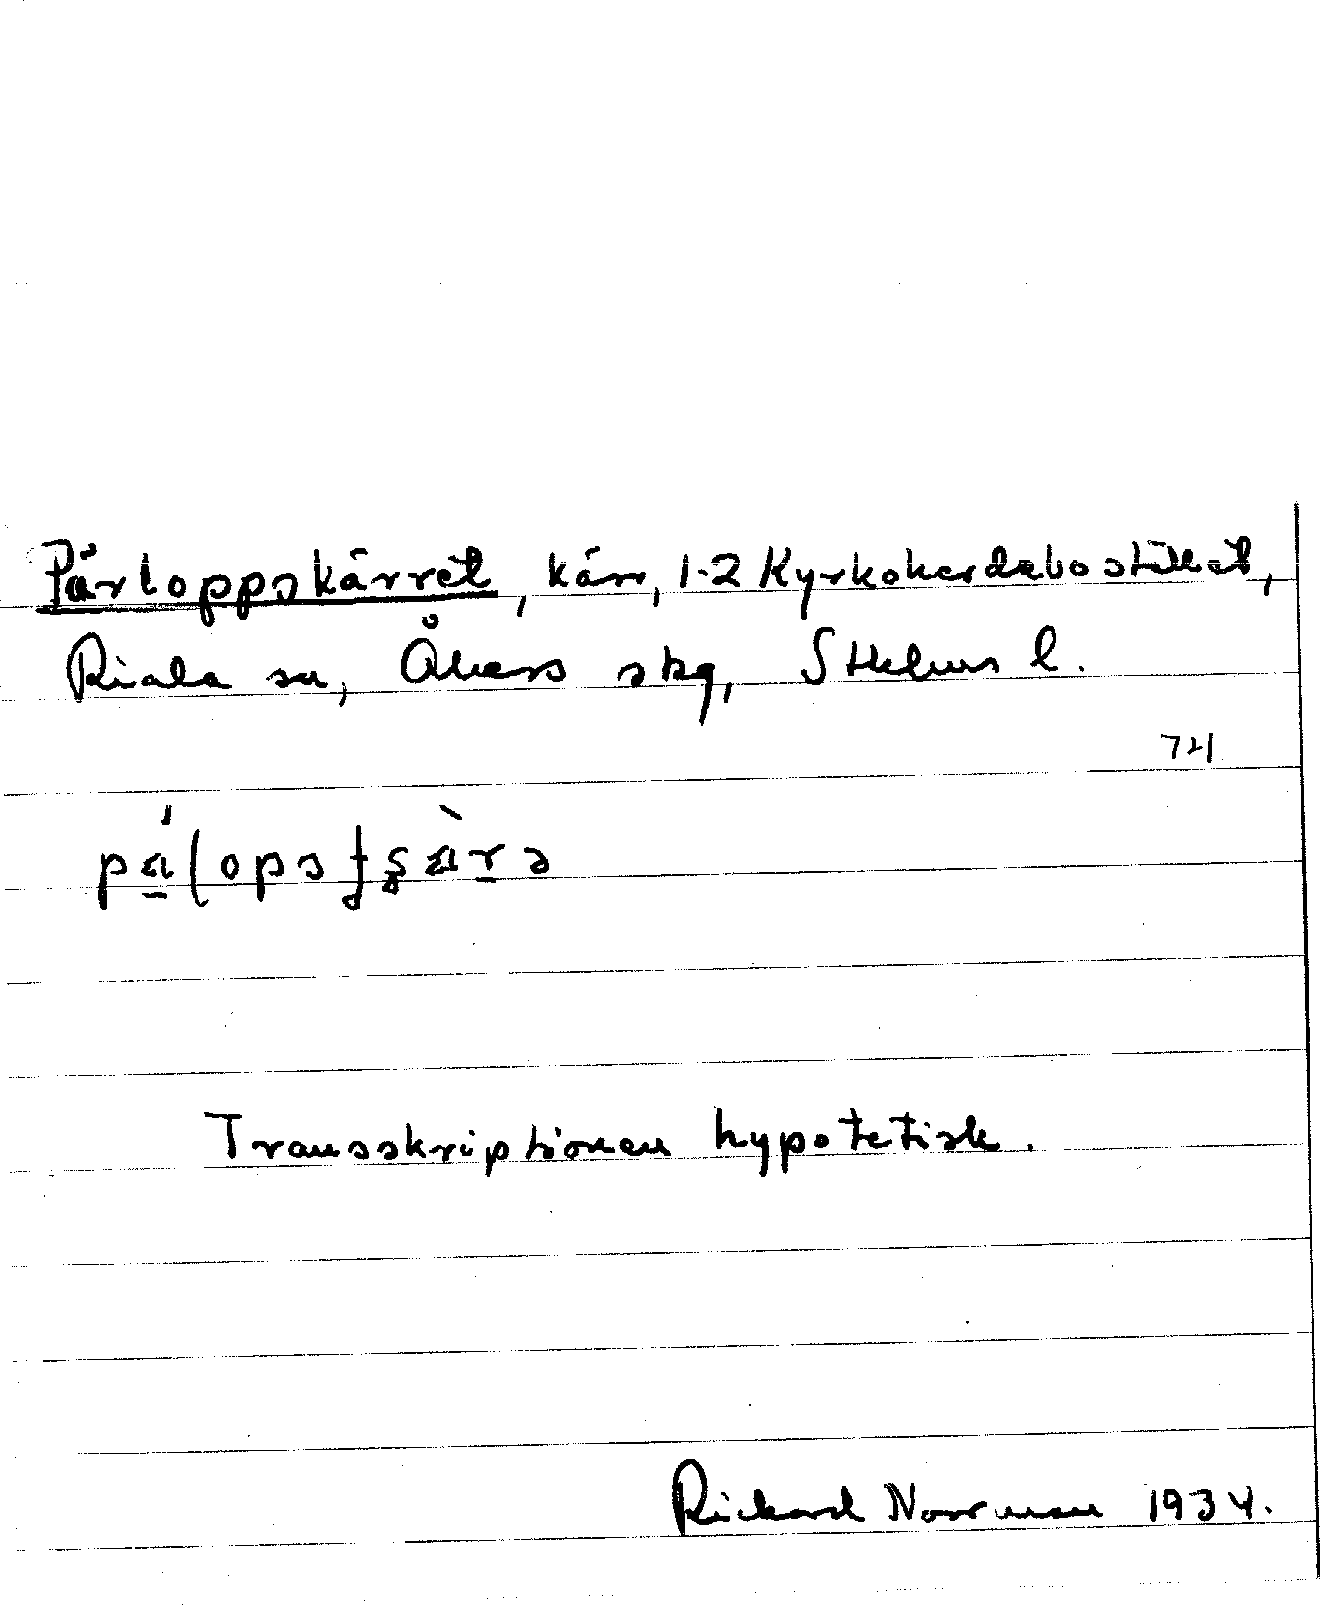 Pärloppskärret, kärr, 1-2 Kyrkoherdebostället,
Riala sn, Åkers skg, Sthlms l.
721
Transskriptionen hypotetisk.
Rickard Norrman 1934.